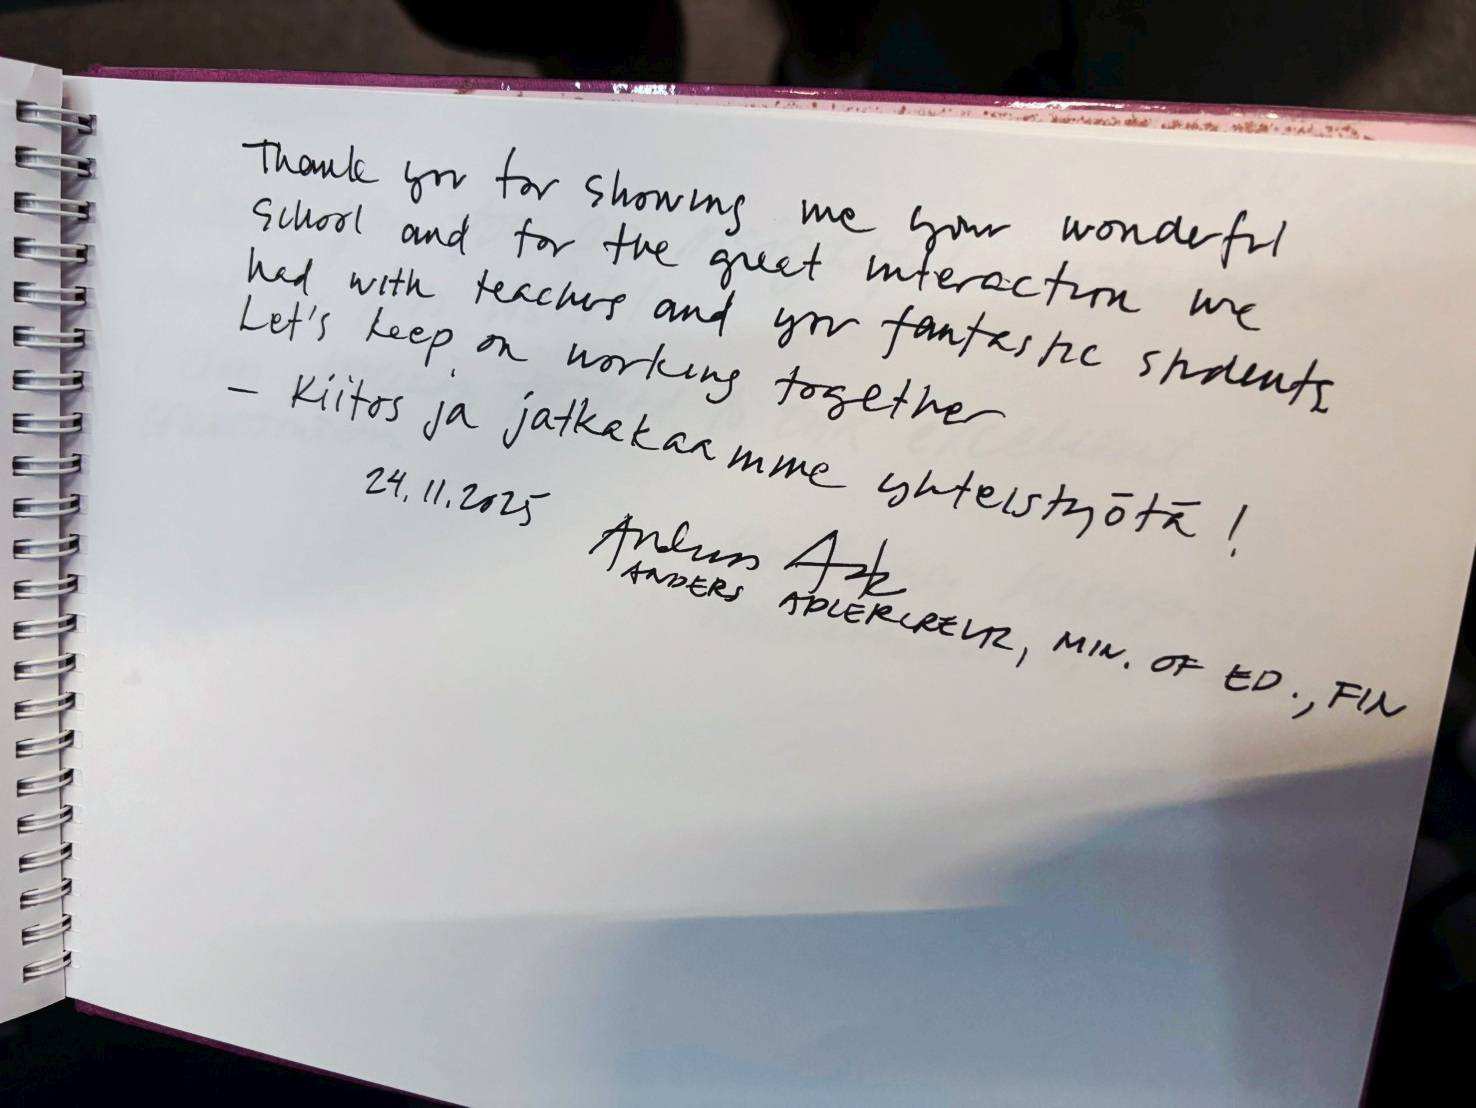 Thank you for showing me your wonderful
school and for the great interaction we
had with teachers and your fantastic students
Let's keep on working together
– Kiitos ja jatkakaamme yhteistyötä!
24.11.2025
Anders
ANDERS ADLERCREUTZ, MIN. OF ED., FIN